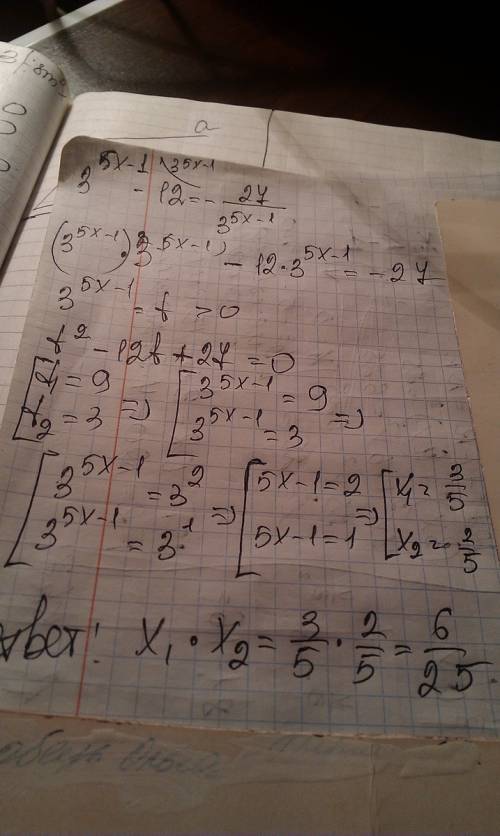 a
3^{5x-1} - 12 = - \frac{27}{3^{5x-1}} \3^{5x-1}
(3^{5x-1}) · 3^{5x-1} - 12 · 3^{5x-1} = -27
3^{5x-1} = t > 0
t^2 - 12t + 27 = 0
[t_1 = 9, t_2 = 3 => [3^{5x-1} = 9, 3^{5x-1} = 3 =>
[3^{5x-1} = 3^2, 3^{5x-1} = 3^1 => [5x-1 = 2, 5x-1 = 1 => [x_1 = \frac{3}{5}, x_2 = \frac{2}{5}
твет: x_1 · x_2 = \frac{3}{5} · \frac{2}{5} = \frac{6}{25}